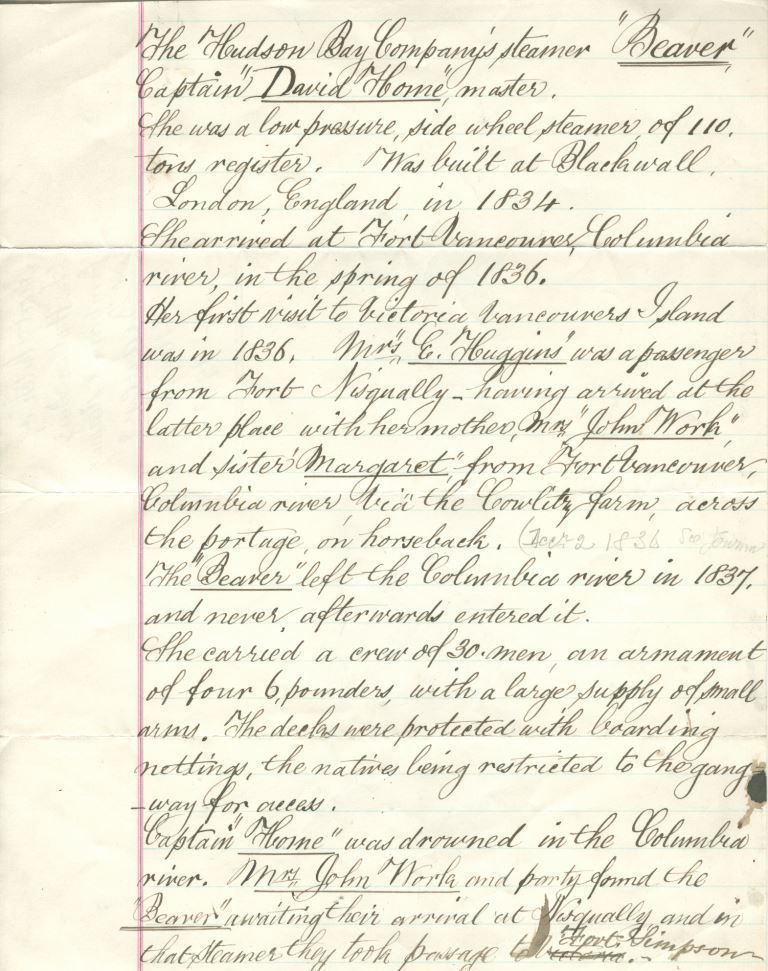 The Hudson Bay Company's steamer "Beaver",
Captain "David Home", master.
She was a low pressure, side wheel steamer, of 110.
tons register. Was built at Blackwall,
London, England in 1834.
She arrived at Fort Vancouver, Columbia
river, in the spring of 1836.
Her first visit to Victoria Vancouvers Island
was in 1836. Mrs "E. Huggins" was a passenger
from Fort Nisqually - having arrived at the
latter place with her mother, Mrs "John Work"
and sister "Margaret" from Fort Vancouver,
Columbia river via the Cowlitz farm, across
the portage, on horseback. (Decr 2 1836 See Journ
The "Beaver" left the Columbia river in 1837.
and never afterwards entered it.
She carried a crew of 30 men, an armament
of four 6, pounders, with a large supply of small
arms. The decks were protected with boarding
nettings, the natives being restricted to the gang-
-way for access.
Captain "Home" was drowned in the Columbia
river. Mrs John Work and party found the
"Beaver" awaiting their arrival at Nisqually and in
that steamer they took passage to Fort Simpson